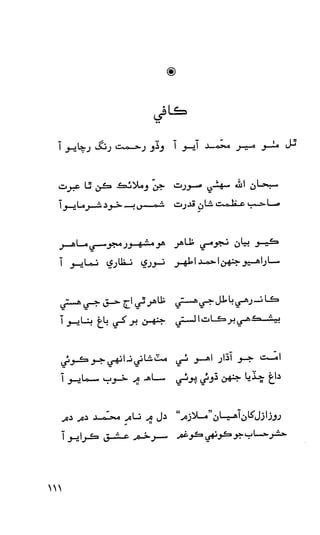 ڪافي
ٿل مٺو مير محمّد آيو آ وڏو رحمت رنگ رچايو آ
سبحان الله سهڻي صورت جنّ وملائڪ ڪن ٿا عبرت
صاحب عظمت شانِ قدرت شمس بہ خود شرمايو آ
ڪيو بيان نجومي ظاهر هو مشهور مجوسي ماهر
ساراهيو جنهن احمد اطهر نوري نظاري نمايو آ
ڪانہ رهي باطل جي هستي ظاهر ٿي اڄ حق جي هستي
بيشڪ هي برڪات الستي جنهن بر کي باغ بنايو آ
امّت جو آڌار اهو ئي مٽ شاني نہ انهي جو ڪوئي
داغ ڇڏيا جنهن ڌوئي پوئي ساهہ ۾ خوب سمايو آ
روز ازل کان آهيان ”ملازم“ دل ۾ نامِ محمّد دم دم
حشر حساب جو ڪونهي ڪو غم سرخم عشق ڪرايو آ
١١١